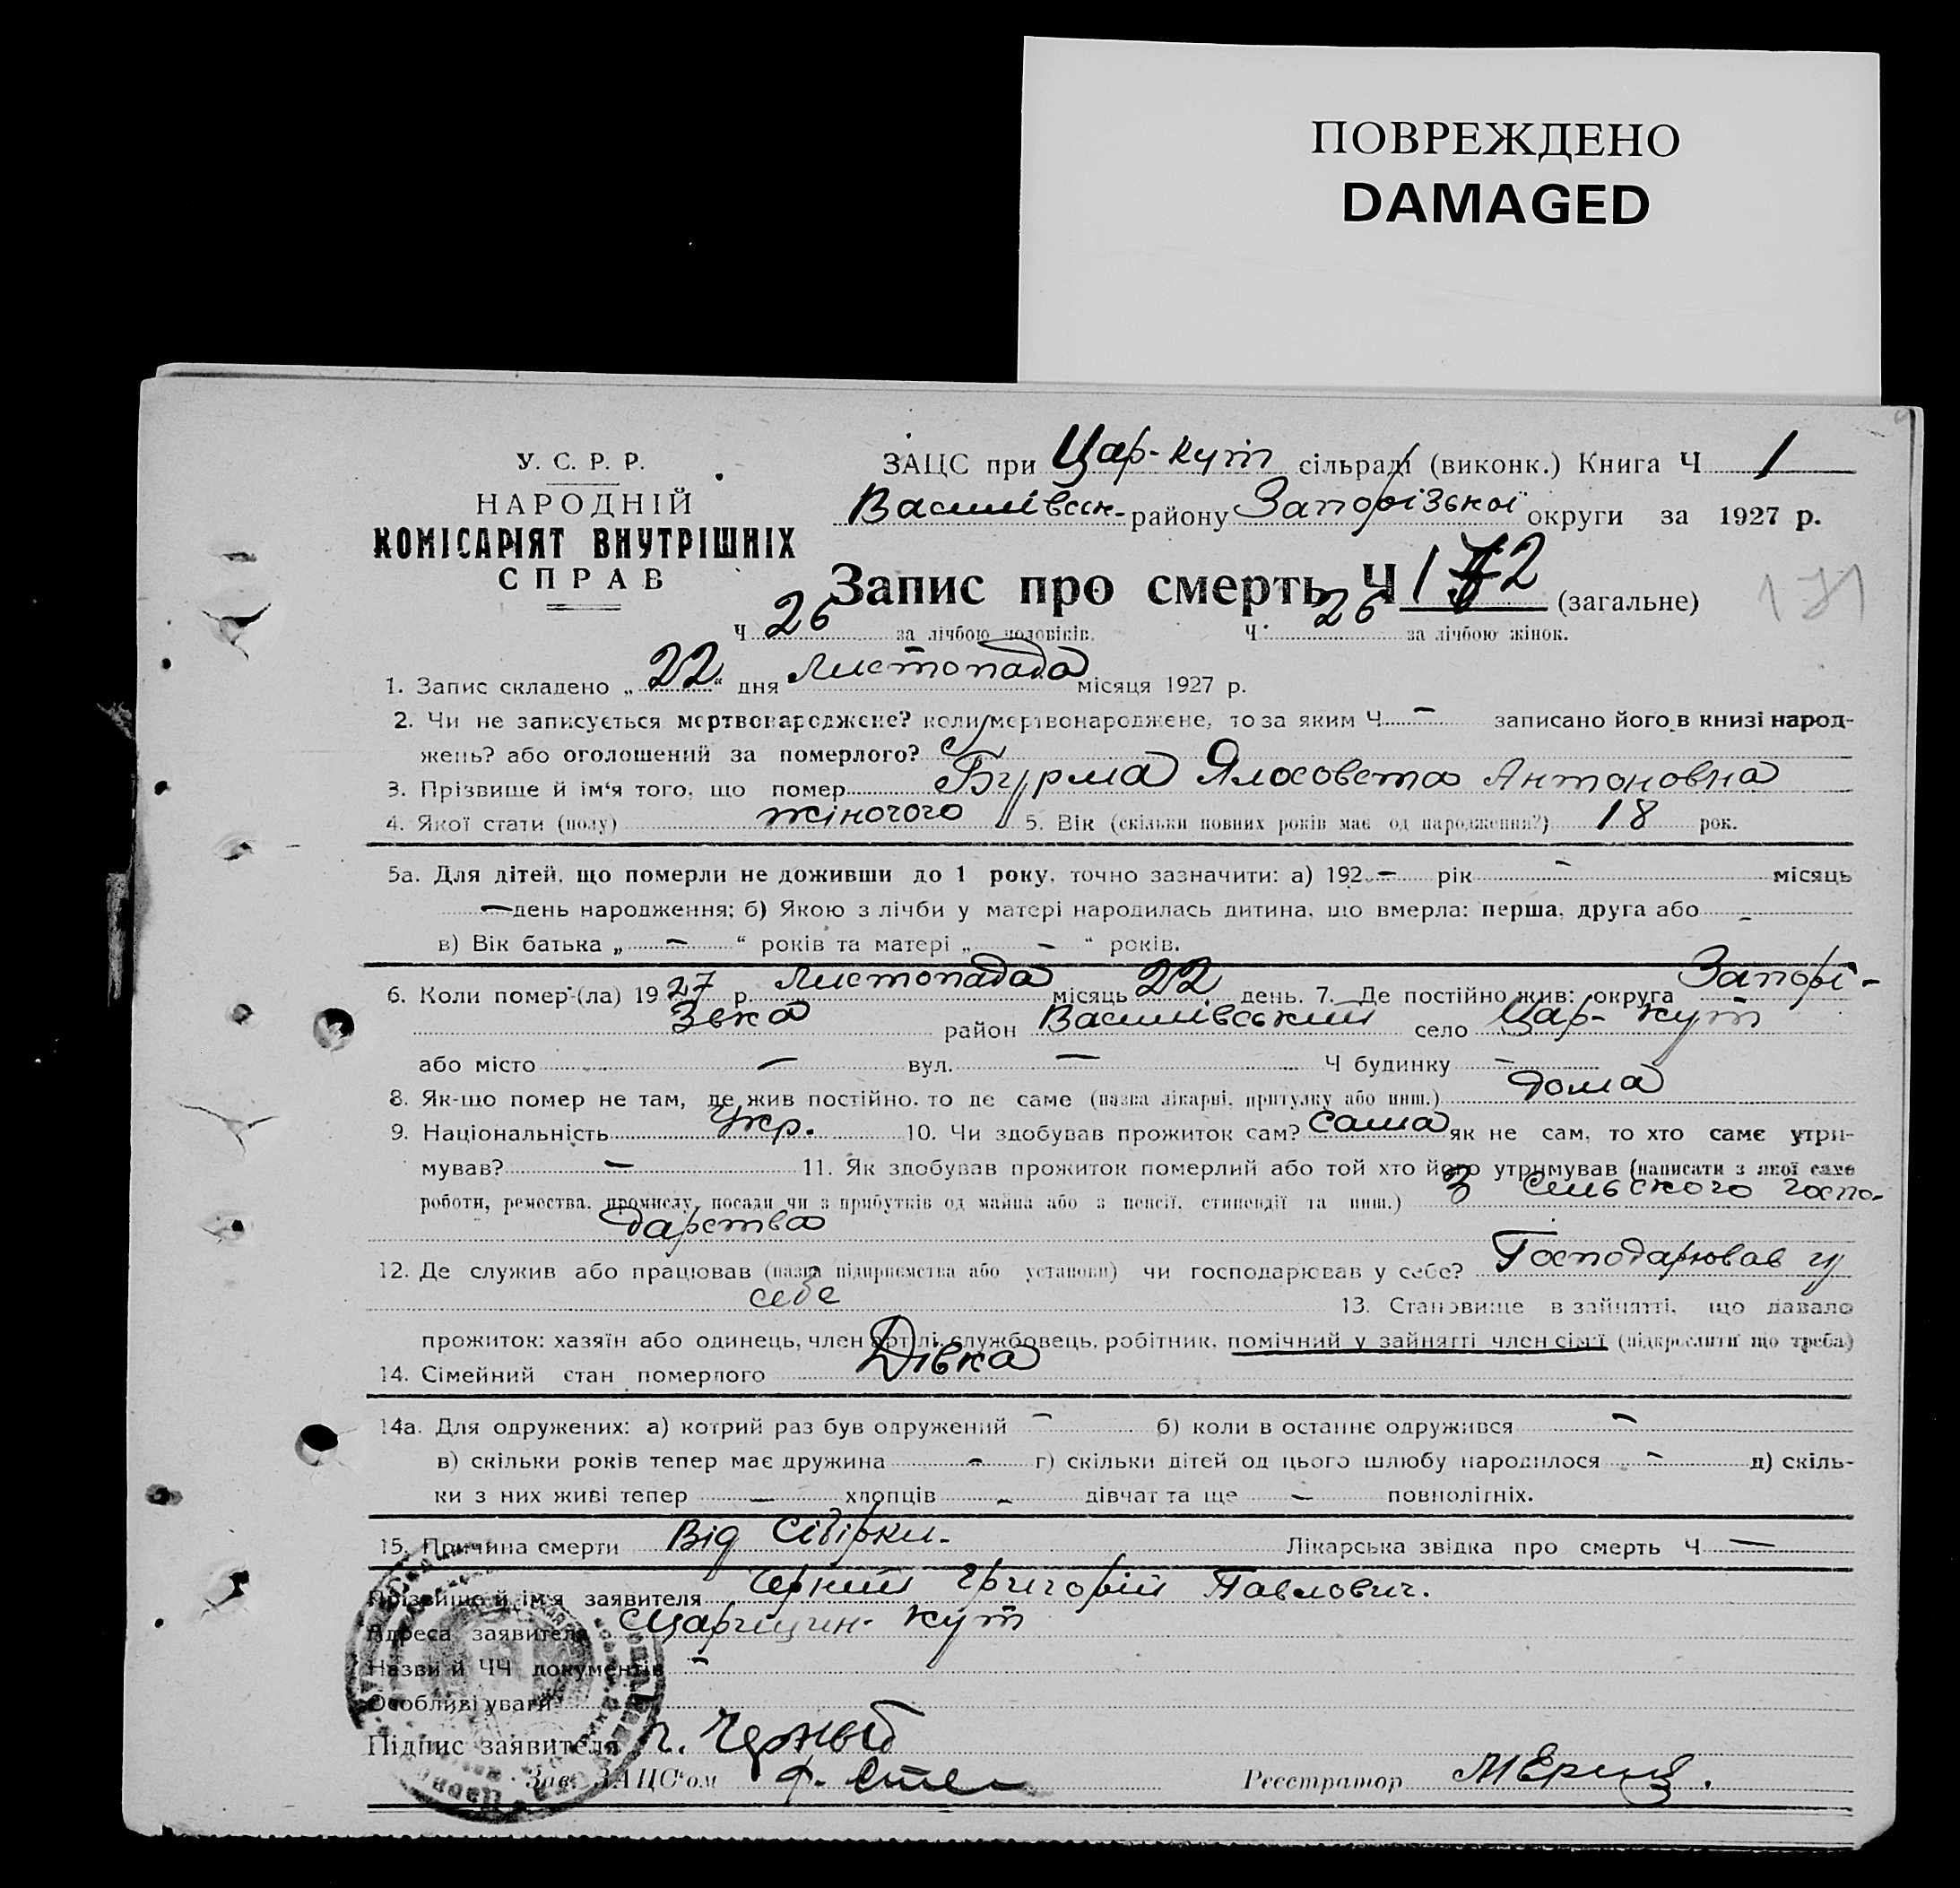 ПОВРЕЖДЕНО
DAMAGED
У. С. Р. Р.
НАРОДНІЙ
КОМІСАРІЯТ ВНУТРІШНІХ
СПРАВ
ЗАЦС при Цар-кут сільраді (виконк.) Книга Ч 1
Василівськ. району Запорізької округи за 1927 р.
Запис про смерть Ч 1 2 (загальне)
171
Ч 26 за лічбою чоловіків. Ч 26 за лічбою жінок.
1. Запис складено „ 22 “ дня Листопада місяця 1927 р.
2. Чи не записується мертвонароджене? коли мертвонароджене, то за яким Ч – записано його в книзі народ-
жень? або оголошений за померлого?
3. Прізвище й ім‘я того, що помер Бурма Ялосовета Антоновна
4. Якої стати (полу) жіночого 5. Вік (скільки повних років має од народження?) 18 рок.
5а. Для дітей, що померли не доживши до 1 року, точно зазначити: а) 192 – рік – місяць
– день народження; б) Якою з лічби у матері народилась дитина, що вмерла: перша, друга або –
в) Вік батька „ – “ років та матері „ – “ років.
6. Коли помер-(ла) 1927 р. Листопада місяць 22 день. 7. Де постійно жив: округа Запорі-
зька район Василівський село Цар-кут
або місто – вул. – Ч будинку –
8. Як-що помер не там, де жив постійно, то де саме (назва лікарні, притулку або инш.) Дома
9. Національність Укр. 10. Чи здобував прожиток сам? Сама як не сам, то хто саме утри-
мував? – 11. Як здобував прожиток померлий або той хто його утримував (написати з якої саме
роботи, ремества, промислу, посади чи з прибутків од майна або з пенсії, стипендії та инш.) З сельского госпо-
дарства
12. Де служив або працював (назва підприємства або установи) чи господарював у себе? Господарював у
себе 13. Становище в зайнятті, що давало
прожиток: хазяїн або одинець, член артілі, службовець, робітник, помічний у зайнятті член сім‘ї (підкреслити що треба)
14. Сімейний стан померлого Дівка
14а. Для одружених: а) котрий раз був одружений – б) коли в останнє одружився –
в) скільки років тепер має дружина – г) скільки дітей од цього шлюбу народилося – д) скіль-
ки з них живі тепер – хлопців – дівчат та ще – повнолітніх.
15. Причина смерти Від Сібірки. Лікарська звідка про смерть Ч –
Прізвище й ім‘я заявителя Чернии Григорій Павлович.
Адреса заявителя Царицин. Кут
Назви й ЧЧ документів –
Особливі уваги
Підпис заявителя Г. Черный
Зав. ЗАЦС‘ом
Реєстратор